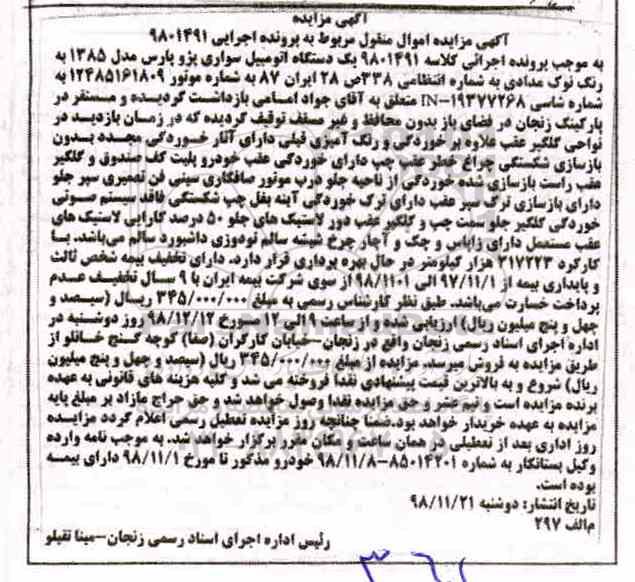 آگهی مزایده
آگهی مزایده اموال منقول مربوط به پرونده اجرایی ۹۸۰۱۴۹۱
به موجب پرونده اجرائی کلاسه ۹۸۰۱۴۹۱ یک دستگاه اتومبیل سواری پژو پارس مدل ۱۳۸۵ به
رنگ نوک مدادی به شماره انتظامی ۳۳۸ص ۲۸ ایران ۸۷ به شماره موتور ۱۲۴۸۵۱۶۱۸۰۹ به
شماره شاسی IN-۱۹۳۷۷۲۶۸ متعلق به آقای جواد امامی بازداشت گردیده و مستقر در
پارکینگ زنجان در فضای باز بدون محافظ و غیر مسقف توقیف گردیده که در زمان بازدید در
نواحی گلگیر عقب علاوه بر خوردگی و رنگ آمیزی قبلی دارای آثار خوردگی مجدد بدون
بازسازی شکستگی چراغ خطر عقب چپ دارای خوردگی عقب خودرو پلیت کف صندوق و گلگیر
عقب راست بازسازی شده خوردگی از ناحیه جلو درب موتور صافکاری سینی فن تعمیری سپر جلو
دارای بازسازی ترک سپر عقب دارای ترک خوردگی آینه بغل چپ شکستگی فاقد سیستم صوتی
خوردگی گلگیر جلو سمت چپ و گلگیر عقب دور لاستیک های جلو ۵۰ درصد کارایی لاستیک های
عقب مستعمل دارای زاپاس و جک و آچار چرخ شیشه سالم تودوزی داشبورد سالم می‌باشد. با
کارکرد ۲۱۷۲۲۳ هزار کیلومتر در حال بهره برداری قرار دارد. دارای تخفیف بیمه شخص ثالث
و پایداری بیمه از ۹۷/۱۱/۱ الی ۹۸/۱۱۰۱ از سوی شرکت بیمه ایران با ۹ سال تخفیف عدم
پرداخت خسارت می‌باشد. طبق نظر کارشناس رسمی به مبلغ ۳۴۵/۰۰۰/۰۰۰ ریال (سیصد و
چهل و پنج میلیون ریال) ارزیابی شده و از ساعت ۹ الی ۱۲ مورخ ۹۸/۱۲/۱۲ روز دوشنبه در
اداره اجرای اسناد رسمی زنجان واقع در زنجان-خیابان کارگران (صفا) کوچه کنج خانلو از
طریق مزایده به فروش میرسد. مزایده از مبلغ ۳۴۵/۰۰۰/۰۰۰ ریال (سیصد و چهل و پنج میلیون
ریال) شروع و به بالاترین قیمت پیشنهادی نقدا فروخته می شد و کلیه هزینه های قانونی به عهده
برنده مزایده است و نیم عشر و حق مزایده نقدا وصول خواهد شد و حق حراج مازاد بر مبلغ پایه
مزایده به عهده خریدار خواهد بود.ضمنا چنانچه روز مزایده تعطیل رسمی اعلام گردد مزایده
روز اداری بعد از تعطیلی در همان ساعت و مکان مقرر برگزار خواهد شد. به موجب نامه وارده
وکیل بستانکار به شماره ۸۵۰۱۴۲۰۱-۹۸/۱۱/۸ خودرو مذکور تا مورخ ۹۸/۱۱/۱ دارای بیمه
بوده است.
تاریخ انتشار: دوشنبه ۹۸/۱۱/۲۱
م‌الف ۲۹۷
رئیس اداره اجرای اسناد رسمی زنجان-مینا تقیلو